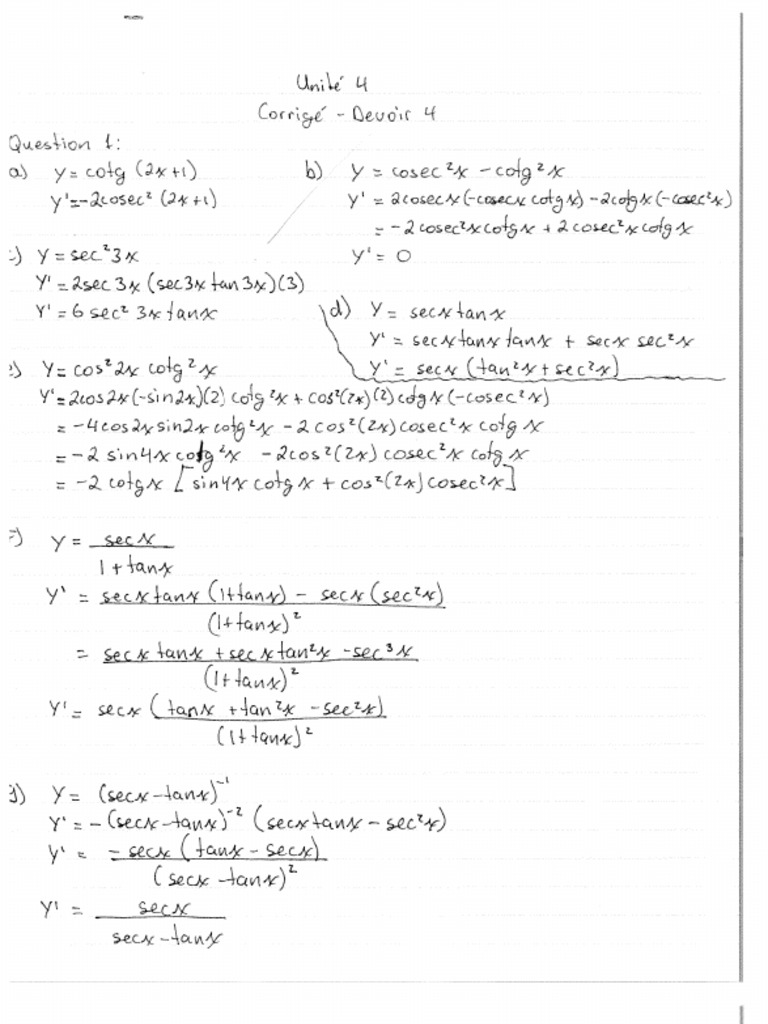 Unité 4
Corrigé - Devoir 4
Question 1:
a) y = cotg (2x+1)
y' = -2cosec² (2x+1)
b) y = cosec²x - cotg²x
y' = 2cosecx(-cosecx cotgx) - 2cotgx(-cosec²x)
= -2cosec²xcotgx + 2cosec²xcotgx
y' = 0
c) y = sec²3x
y' = 2sec3x (sec3x tan3x)(3)
y' = 6 sec² 3x tanx
d) y = secxtanx
y' = secxtanxtanx + secx sec²x
y' = secx (tan²x + sec²x)
e) y = cos²2x cotg²x
y' = 2cos2x(-sin2x)(2) cotg²x + cos²(2x)(2)cotgx(-cosec²x)
= -4cos2xsin2xcotg²x - 2cos²(2x)cosec²x cotgx
= -2 sin4x cotg²x - 2cos²(2x) cosec²x cotgx
= -2 cotgx [sin4x cotgx + cos²(2x) cosec²x]
f) y = secx / 1+tanx
y' = secxtanx (1+tanx) - secx (sec²x) / (1+tanx)²
= secx tanx + secxtan²x - sec³x / (1+tanx)²
y' = secx (tanx + tan²x - sec²x) / (1+tanx)²
g) y = (secx-tanx)⁻¹
y' = -(secx-tanx)⁻² (secxtanx - sec²x)
y' = -secx (tanx - secx) / (secx-tanx)²
y' = secx / secx-tanx